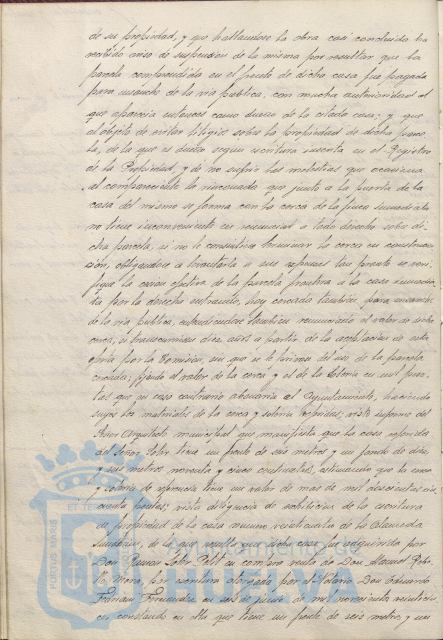 de su propiedad, y que hallandose la obra casi concluida ha
recibido aviso de suspension de la misma por resultar que la
parcela comprendida en el frente de dicha casa fue pagada
para ensanche de la via publica, con mucha anterioridad al
que aparecia entonces como dueño de la citada casa; y que
al objeto de evitar litigio sobre la propiedad de dicha parce-
la, de la que es dueño segun escritura inscrita en el Registro
de la Propiedad, y de no sufrir las molestias que ocasiona
al compareciente la rinconada que junto a la puerta de la
casa del mismo se forma con la cerca de la finca inmediata
no tiene inconveniente en renunciar a todo derecho sobre di-
cha parcela, si se le consiente terminar la cerca en construc-
cion, obligandose a levantarla a sus expensas tan pronto se veri-
fique la cesion efectiva de la parcela frontera a la casa inmedia-
ta por la derecha entrando, hoy cercada tambien, para ensanche
de la via publica, entendiendose tambien renunciado el valor de dicha
cerca, si transcurriesen diez años a partir de la aceptacion de esta
oferta por la Comision, sin que se le privase del uso de la parcela
cercada; fijando el valor de la cerca y el de la soleria en mil pese-
tas que en caso contrario abonaria el Ayuntamiento, haciendo
suyos los materiales de la cerca y soleria repetidas; visto informe del
Señor Arquitecto municipal que manifiesta que la casa referida
del Señor Soler tiene un frente de seis metros y un fondo de diez
y seis metros noventa y cinco centimetros, estimando que la cerca
y soleria de referencia tiene un valor de mas de mil doscientas cin-
cuenta pesetas; vista diligencia de exhibicion de la escritura
de propiedad de la casa numero veinticuatro de la Alameda
de la que resulta que dicha casa fue adquirida por
Don Soler en compra venta de Don Manuel
Mora, por escritura otorgada por el Notario Don Eduardo
Fernandez en seis de junio de mil novecientos
en que tiene un frente de seis metros, y un